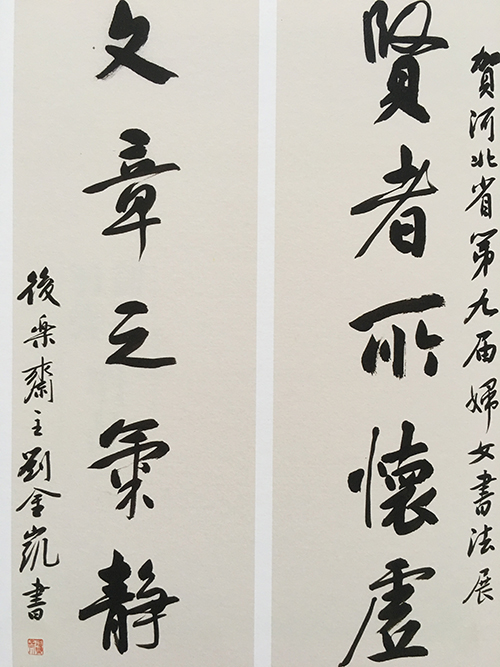 賀河北省第九届婦女書法展
賢者所懷虛
文章之氣靜
後樂齋主劉金凱書